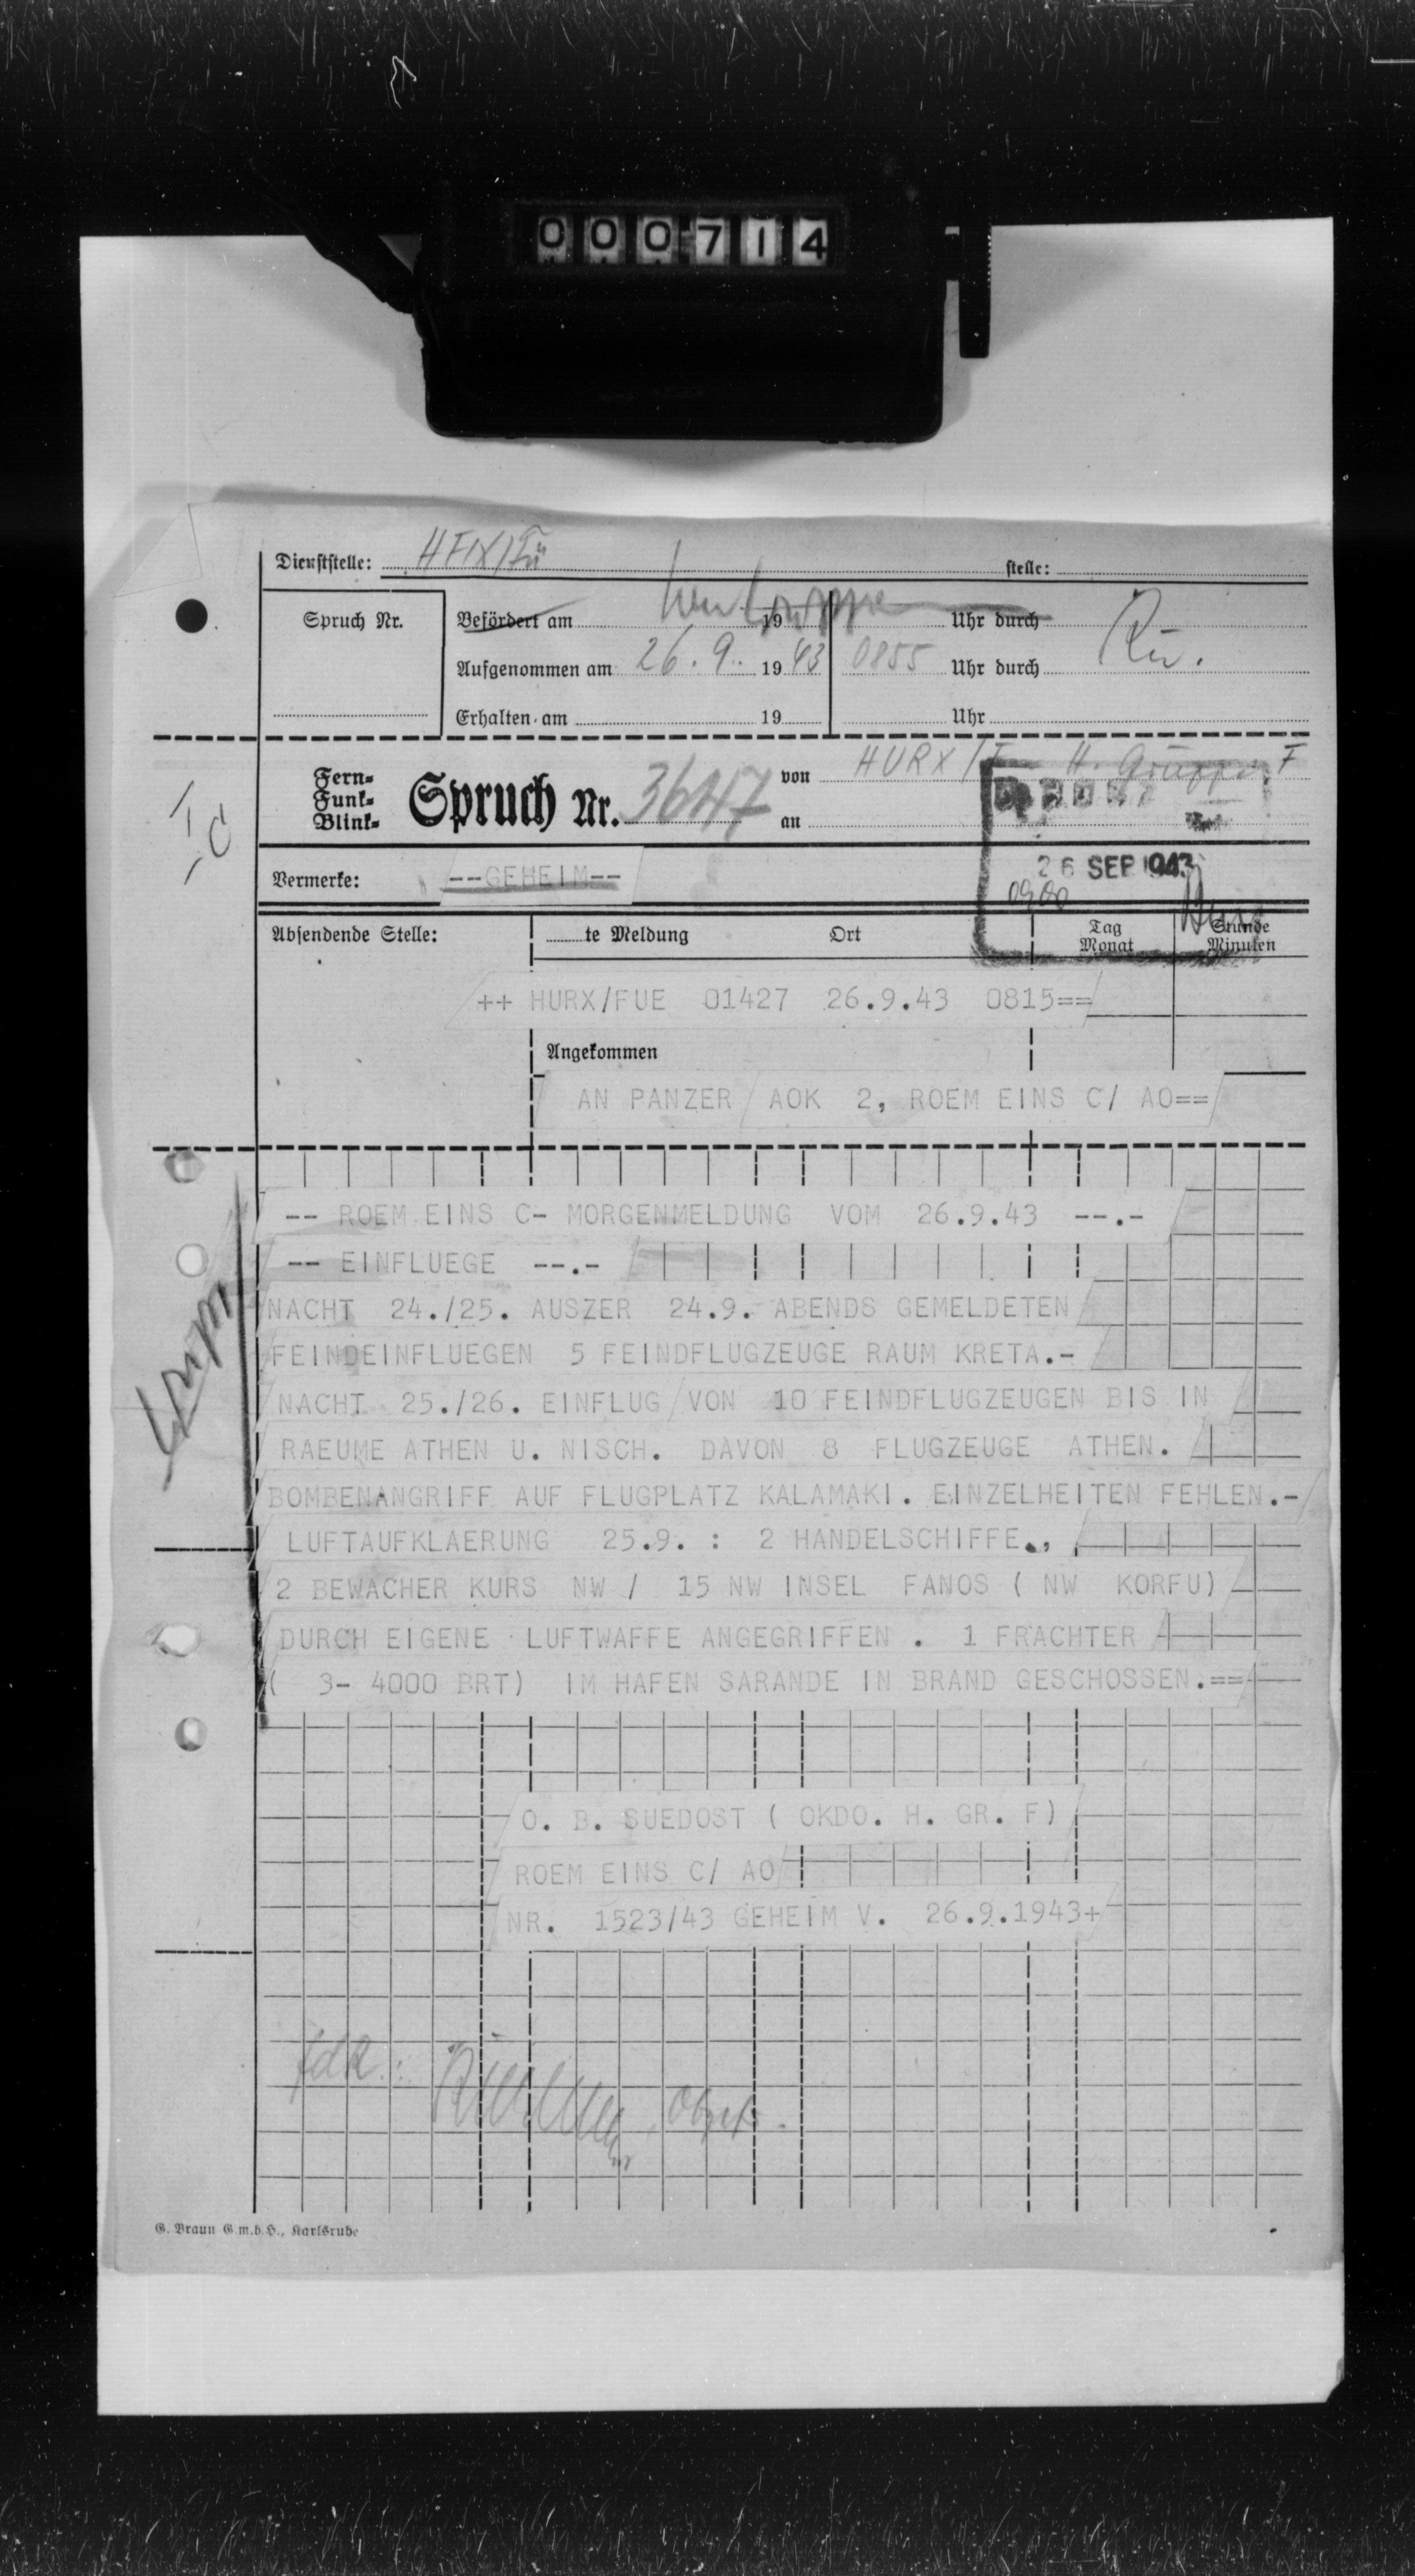 000714
Dienststelle: HFIX/Fü stelle:
Spruch Nr. Befördert am 19 Uhr durch
Aufgenommen am 26.9. 1943 0855 Uhr durch Rü.
Erhalten am 19 Uhr
Fern-
Funk-
Blink-
Spruch Nr. 3647 von HURX/F H. Gruppe F
an
I c
26 SEP 1943
0900
Vermerke: --GEHEIM--
Absendende Stelle: te Meldung Ort Tag Monat Stunde Minuten
++ HURX/FUE 01427 26.9.43 0815==
Angekommen
AN PANZER AOK 2, ROEM EINS C/ AO==
-- ROEM EINS C- MORGENMELDUNG VOM 26.9.43 --.-
-- EINFLUEGE --.-
NACHT 24./25. AUSZER 24.9. ABENDS GEMELDETEN
FEINDEINFLUEGEN 5 FEINDFLUGZEUGE RAUM KRETA.-
NACHT 25./26. EINFLUG VON 10 FEINDFLUGZEUGEN BIS IN
RAEUME ATHEN U. NISCH. DAVON 8 FLUGZEUGE ATHEN.
BOMBENANGRIFF AUF FLUGPLATZ KALAMAKI. EINZELHEITEN FEHLEN.-
LUFTAUFKLAERUNG 25.9. : 2 HANDELSCHIFFE.,
2 BEWACHER KURS NW / 15 NW INSEL FANOS ( NW KORFU)
DURCH EIGENE LUFTWAFFE ANGEGRIFFEN . 1 FRACHTER
( 3- 4000 BRT) IM HAFEN SARANDE IN BRAND GESCHOSSEN.==
O. B. SUEDOST ( OKDO. H. GR. F)
ROEM EINS C/ AO
NR. 1523/43 GEHEIM V. 26.9.1943+
fdR.:
G. Braun G.m.b.H., Karlsruhe